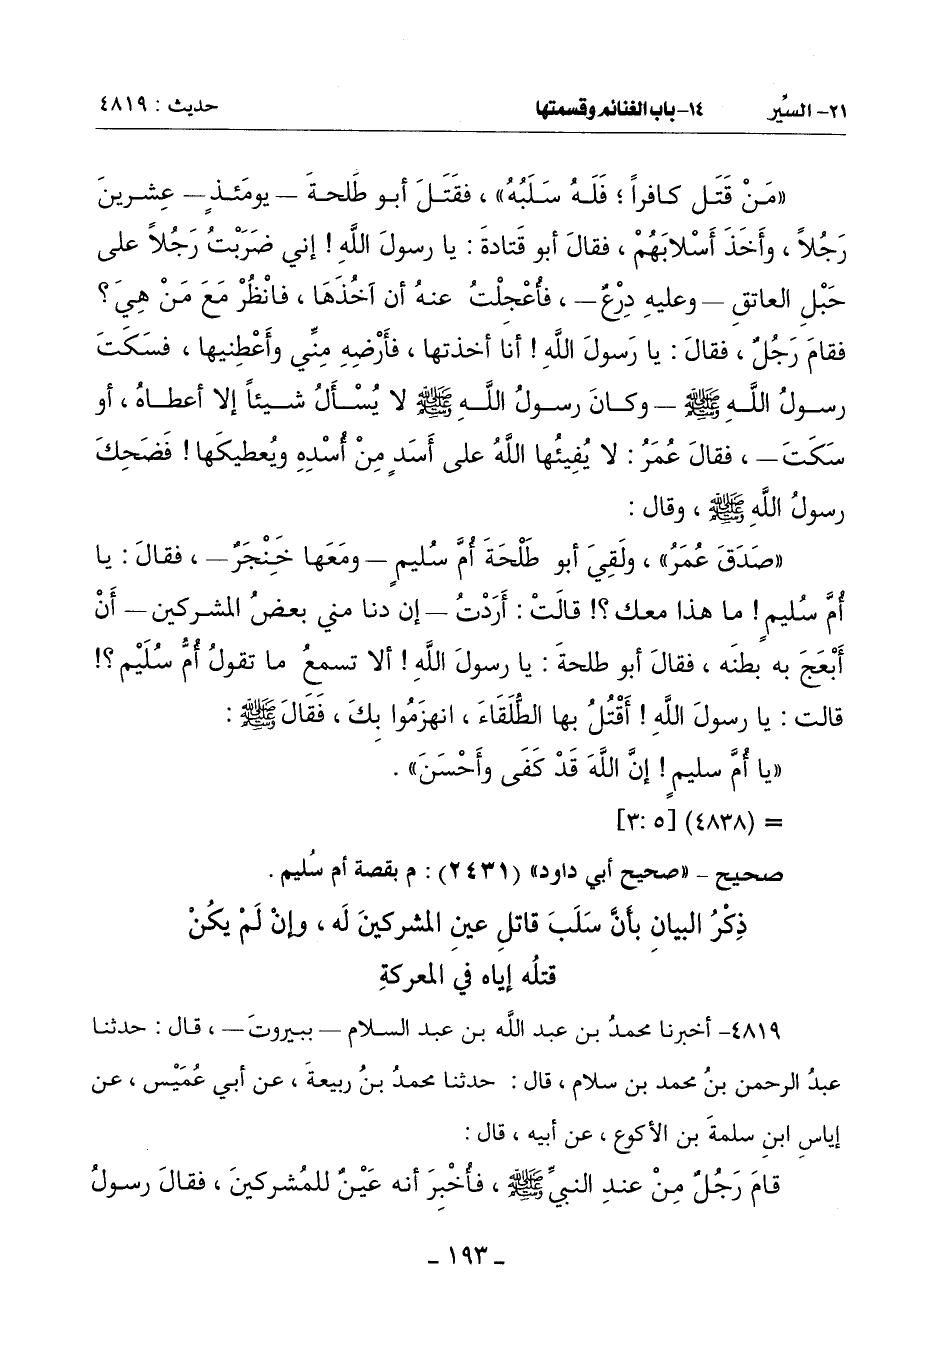 ٢١- السِّير ١٤-باب الغنائم وقسمتها حديث : ٤٨١٩
«مَنْ قَتَل كافراً ؛ فَلَهُ سَلَبُهُ» ، فقَتَلَ أبو طَلحةَ – يومَئذٍ – عِشرينَ
رَجُلاً ، وأَخَذَ أَسْلابَهُمْ ، فقالَ أبو قَتادةَ : يا رسولَ اللَّهِ ! إني ضَرَبْتُ رَجُلاً على
حَبْلِ العاتقِ –وعليهِ دِرْعٌ– ، فأُعْجِلْتُ عنهُ أن آخُذَهَا ، فانْظُرْ مَعَ مَنْ هِيَ ؟
فقامَ رَجُلٌ ، فقالَ : يا رَسولَ اللَّهِ ! أنا أخذتها ، فأَرْضِهِ مِنِّي وأَعْطِنيها ، فسَكَتَ
رسولُ اللَّهِ ﷺ – وكانَ رسولُ اللَّهِ ﷺ لا يُسْأَلُ شيئاً إلا أعطاهُ ، أو
سَكَتَ– ، فقالَ عُمَرُ : لا يُفِيئُها اللَّهُ على أَسَدٍ مِنْ أُسْدِهِ ويُعطيكَها ! فَضَحِكَ
رسولُ اللَّهِ ﷺ ، وقال :
«صَدَقَ عُمَرُ» ، ولَقِيَ أبو طَلْحَةَ أُمَّ سُليمٍ – ومَعَها خَنْجَرٌ– ، فقالَ : يا
أُمَّ سُليمٍ ! ما هذا معك ؟! قالَتْ : أَرَدْتُ –إن دنا مني بعضُ المشركين– أَنْ
أَبْعَجَ به بطنَه ، فقالَ أبو طلحةَ : يا رسولَ اللَّهِ ! ألا تسمعُ ما تقولُ أُمُّ سُلَيْمٍ ؟!
قالت : يا رسولَ اللَّهِ ! أَقْتُلُ بها الطُّلَقَاءَ ، انهزَمُوا بِكَ ، فَقَالَ ﷺ :
«يا أُمَّ سليمٍ ! إنَّ اللَّهَ قَدْ كَفَى وأَحْسَنَ» .
= (٤٨٣٨) [٥ :٣]
صحيح - «صحيح أبي داود» (٢٤٣١) : م بقصة أم سُليم .
ذِكْرُ البيانِ بأنَّ سَلَبَ قاتلِ عينِ المشركينَ له ، وإنْ لَمْ يكُنْ
قتلُه إياه في المعركةِ
٤٨١٩- أخبرنا محمدُ بن عبد اللَّه بن عبد السلام –ببيروتَ– ، قال : حدثنا
عبدُ الرحمن بنُ محمد بن سلام ، قال : حدثنا محمدُ بنُ ربيعةَ ، عن أبي عُمَيْس ، عن
إياس ابنِ سلمةَ بن الأكوع ، عن أبيه ، قال :
قامَ رَجُلٌ مِنْ عندِ النبيِّ ﷺ ، فأُخْبِرَ أنه عَيْنٌ للمُشركينَ ، فقالَ رسولُ
- ١٩٣ -